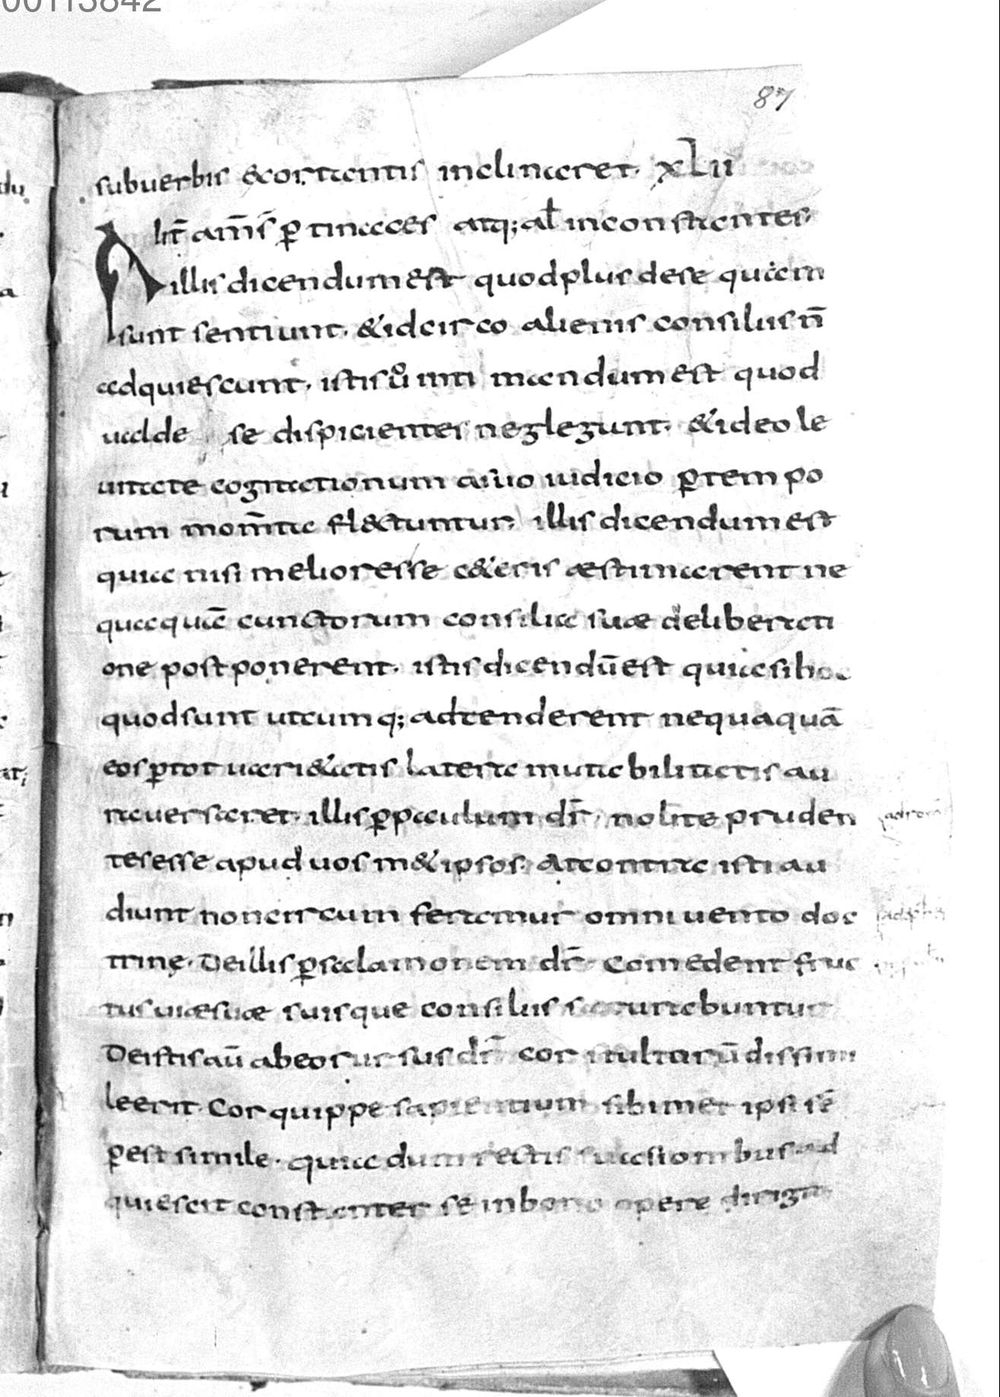 00113842
87
subuerbis & ortantis inclinaret. XLII
Alit̄ am̄s̄ ꝑtinaces atq; al̄ inconstantes
illis dicendum est quod plus de se quam
sunt sentiunt. & idcirco alienis consiliis n̄
adquiescunt. istis ū inti mandum est quod
ualde se dispicientes neglegunt. & ideo le
uitate cogitationum a suo iudicio ꝑ tempo
rum mom̄ta flectuntur. illis dicendum est
quia nisi meliores se c&eris æstimarent ne
quaquā cunctorum consilia suæ deliberati
one postponerent. istis dicendū est quia si hoc
quod sunt utcumq; adtenderent nequaquā
eos ꝑ tot uari&atis latera mutabilitatis au
ra uersaret. illis ꝑ paulum dr̄. nolite pruden
tes esse apud uosm& ipsos. At contra isti au
diunt non circum feramur omni uento doc
trinę. De illis ꝑ salamonem dr̄. Comedent fruc
tus uiæ suæ suisque consiliis saturabuntur
De istis aū ab eo rursus dr̄ cor stultorū dissimi
le erit. Cor quippe sapientium sibimet ipsi sē
ꝑ est simile. quia dum rectis suasionibus ad
quiescit constanter se in bono opere dirigit